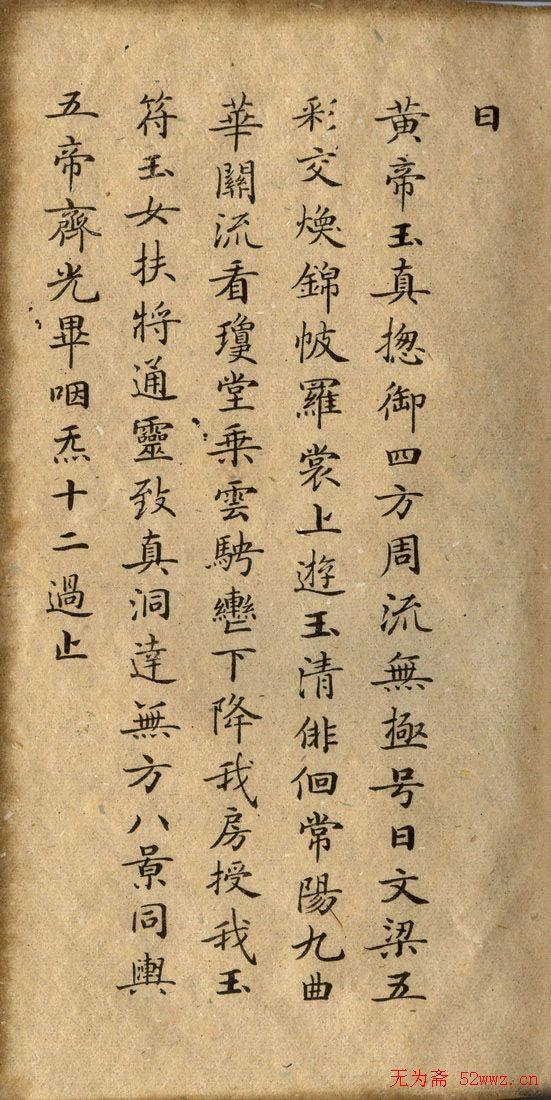 曰
黄帝玉真揔御四方周流無極号曰文梁五
彩交煥錦帔羅裳上遊玉清俳佪常陽九曲
華關流看瓊堂乗雲騁轡下降我房授我玉
符玉女扶将通靈致真洞達無方八景同輿
五帝齊光畢咽炁十二過止
无为斋 52wwz.cn